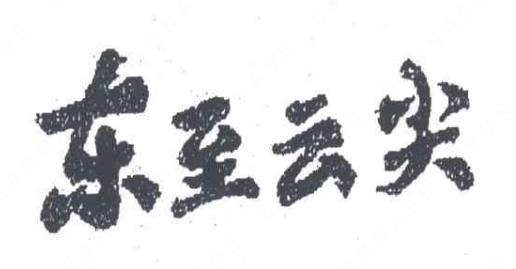 东至云尖